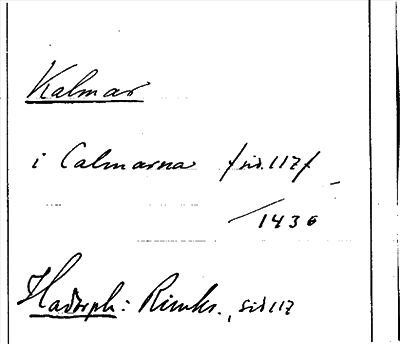 Kalmar
i Calmarna /sid.117/
/1436
Hadorph: Rimkr., sid 117